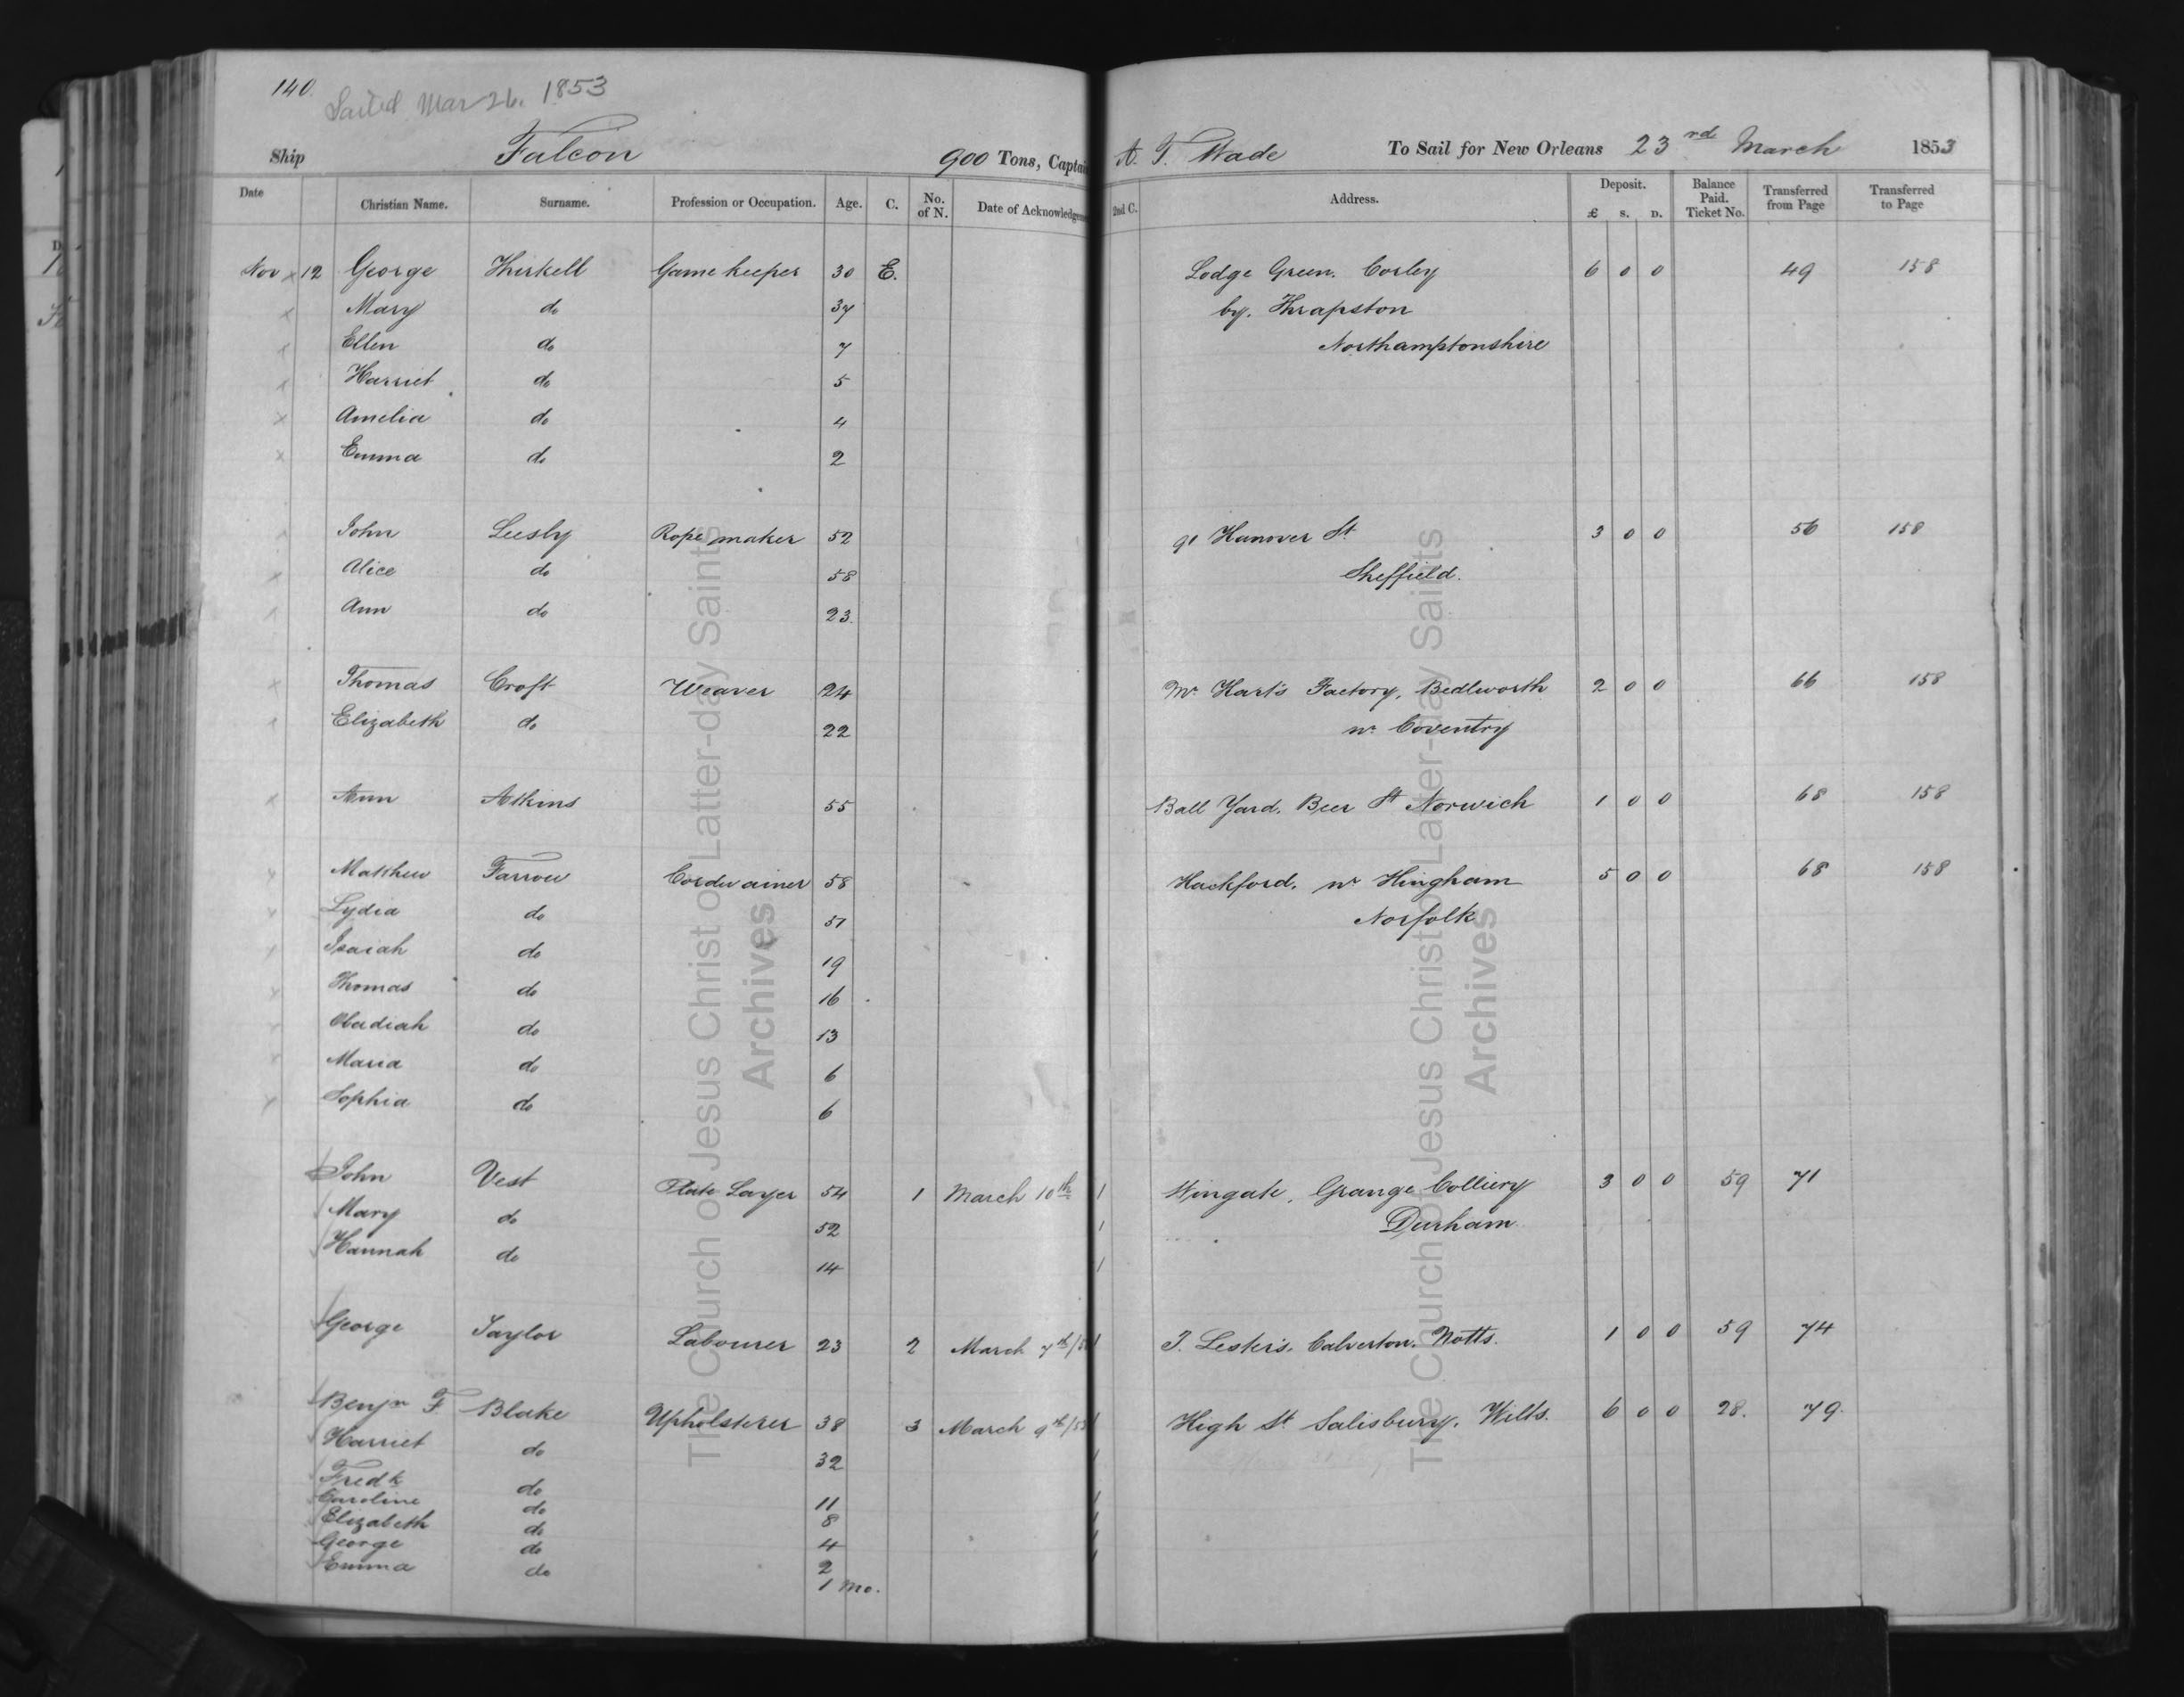 140
Sailed Mar 26. 1853
Ship Falcon 900 Tons, Captain A. T. Wade To Sail for New Orleans 23rd March 1853
Date Christian Name. Surname. Profession or Occupation. Age. C. No. of N. Date of Acknowledgement 2nd C. Address. Deposit. £ S. D. Balance Paid. Ticket No. Transferred from Page Transferred to Page
Nov 12 George Thirkell Gamekeeper 30 E. Lodge Green. Corley 6 0 0 49 158
Mary do 37 by. Thrapston
Ellen do 7 Northamptonshire
Harriet do 5
Amelia do 4
Emma do 2
John Leesly Rope maker 52 91 Hanover St. 3 0 0 56 158
Alice do 58 Sheffield.
Ann do 23.
Thomas Croft Weaver 24 Mr Hart's Factory, Bedlworth 2 0 0 66 158
Elizabeth do 22 nr Coventry
Ann Atkins 55 Ball Yard. Beer St Norwich 1 0 0 68 158
Matthew Farrow Cordwainer 58 Hackford. nr Hingham 5 0 0 68 158
Lydia do 57 Norfolk
Isaiah do 19
Thomas do 16
Obadiah do 13
Maria do 6
Sophia do 6
John Vest Plate Layer 54 1 March 10th 1 Wingate, Grange Colliery 3 0 0 59 71
Mary do 52 1 Durham
Hannah do 14 1
George Taylor Labourer 23 2 March 7th/5 1 T. Lester's. Calverton. Notts. 1 0 0 59 74
Benjn F. Blake Upholsterer 38 3 March 9th/53 1 High St Salisbury. Wilts. 6 0 0 28. 79.
Harriet do 32 1
Fredk do 11 1
Caroline do 8 1
Elizabeth do 4 1
George do 2 1
Emma do 1 mo.
The Church of Jesus Christ of Latter-day Saints
Archives
The Church of Jesus Christ of Latter-day Saints
Archives